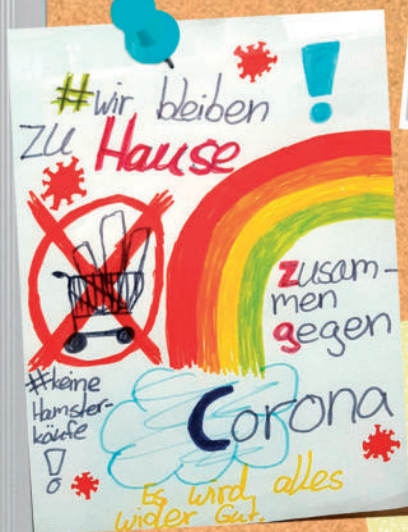 #wir bleiben !
zu Hause
zusam-
men
gegen
Corona
#keine
Hamster-
käufe
!
Es wird alles
wider Gut.